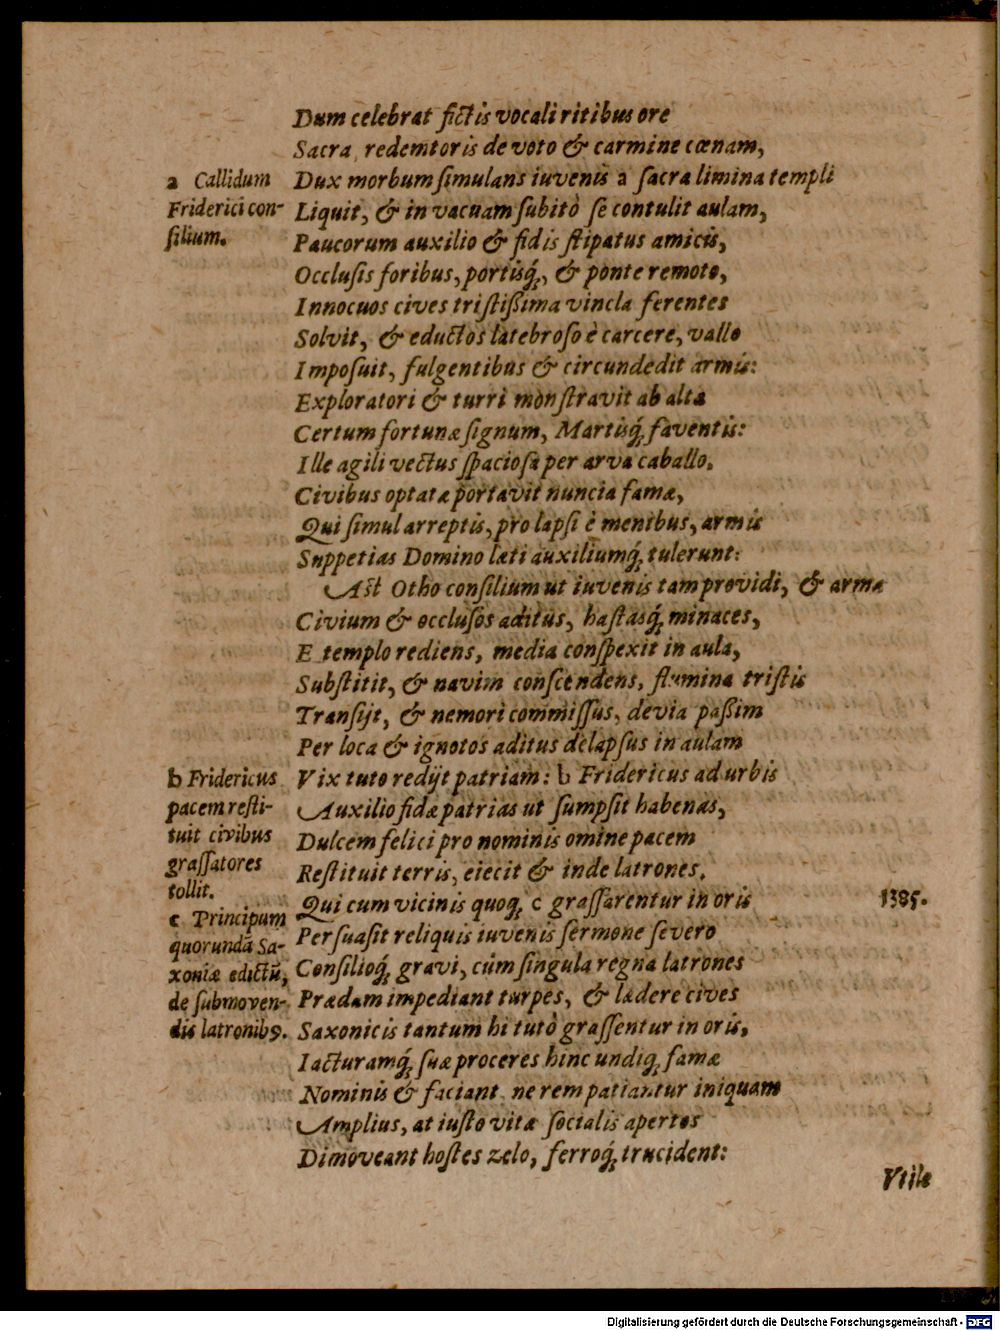 Dum celebrat fictis vocali ritibus ore
Sacra redemtoris de voto & carmine cœnam,
Dux morbum ſimulans iuvenis a ſacra limina templi
Liquit, & in vacuam ſubitò ſe contulit aulam,
Paucorum auxilio & fidis ſtipatus amicis,
Occluſis foribus, portisq́;, & ponte remoto,
Innocuos cives triſtißima vincla ferentes
Solvit, & eductos latebroſo è carcere, vallo
Impoſuit, fulgentibus & circundedit armis:
Exploratori & turri monſtravit ab alta
Certum fortunæ ſignum, Martisq́; faventis:
Ille agili vectus ſpacioſa per arva caballo.
Civibus optatæ portavit nuncia famæ,
Qui ſimul arreptis, pro lapſi è menibus, armis
Suppetias Domino læti auxiliumq́; tulerunt:
Aſt Otho conſilium ut iuvenis tam providi, & arma
Civium & occluſos aditus, haſtasq́; minaces,
E templo rediens, media conſpexit in aula,
Subſtitit, & navim conſcendens, flumina triſtis
Tranſijt, & nemori commiſſus, devia paßim
Per loca & ignotos aditus delapſus in aulam
Vix tuto redijt patriam: b Fridericus ad urbis
Auxilio fidæ patrias ut ſumpſit habenas,
Dulcem felici pro nominis omine pacem
Reſtituit terris, eiecit & inde latrones.
Qui cum vicinis quoq; c graſſarentur in oris
Perſuaſit reliquis iuvenis ſermone ſevero
Conſilioq́; gravi, cùm ſingula regna latrones
Prædam impediant turpes, & lædere cives
Saxonicis tantum hi tutò graſſentur in oris,
Iacturamq́; ſuæ proceres hinc undiq; famæ
Nominis & faciant, ne rem patiantur iniquam
Amplius, at iuſto vitæ ſocialis apertos
Dimoveant hoſtes zelo, ferroq́; trucident:
Vtile
a Callidum
Friderici con-
ſilium.
b Fridericus
pacem reſti-
tuit civibus
graſſatores
tollit.
c Principum
quorundã Sa-
xoniæ edictũ,
de ſubmoven-
dis latronibꝰ.
1385.
Digitalisierung gefördert durch die Deutsche Forschungsgemeinschaft - DFG